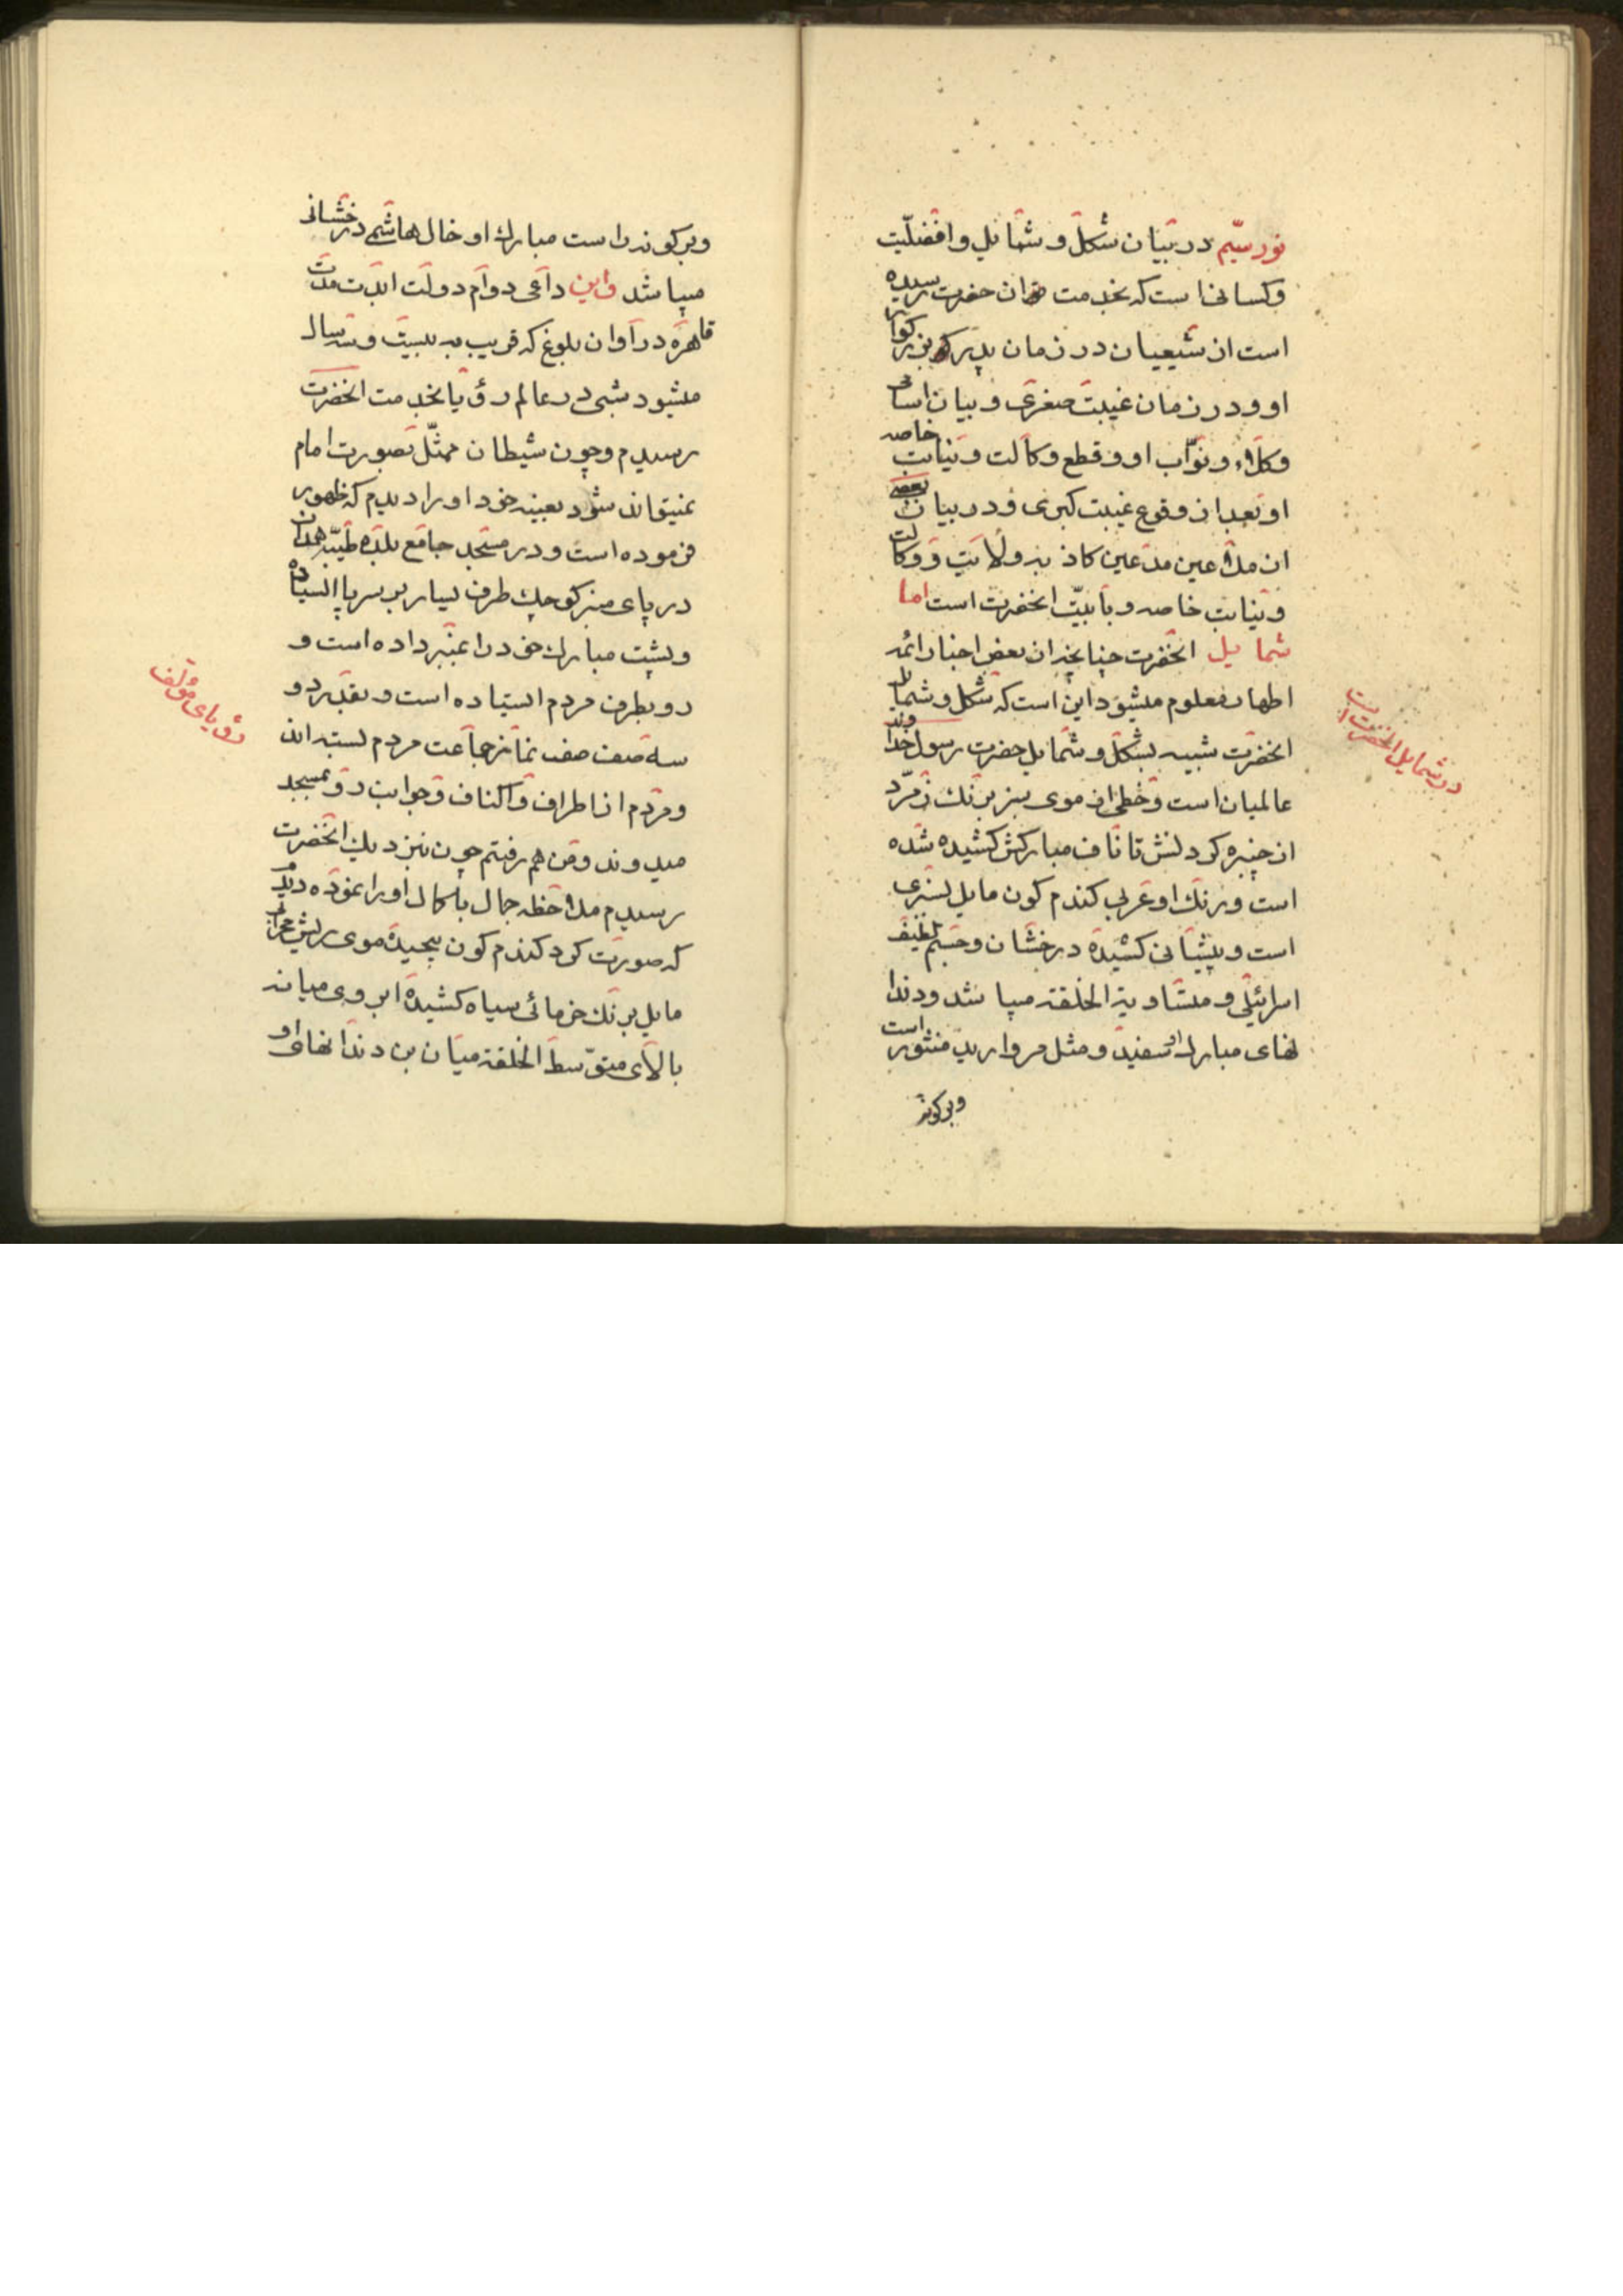 نور سیّم در بیان شکل و شمایل و افضلیّت
و کسانی است که بخدمت ان حضرت رسیده
است از شیعیان در زمان پدر بزرکوار
او و در زمان غیبت صغری و بیان اسامی
وکلاء و نوّاب او و قطع وکالت و نیابت خاصه
او بعد از وقوع غیبت کبری و در بیان بعضی
از ملاعین مدعین کاذبه ولایت و وکالت
و نیابت خاصه و بابیّت انحضرت است اما
شمایل انحضرت چنانچه از بعض اخبار ائمه
اطهار معلوم میشود این است که شکل و شمایل
انحضرت شبیه بشکل و شمایل حضرت رسول خداوند
عالمیان است و خطی از موی سبز برنك زمرّد
از چنبره کردنش تا ناف مبارکش کشیده شده
است و رنك او عربی کندم کون مایل بسبزی
است و پیشانی کشیده درخشان و جسم لطیف
اسرائیلی و متساویة الخلقة میباشد و دندا
نهای مبارك او سفید و مثل مروارید منثور است
و بر کونه
در شمایل انحضرت است
و بر کونه راست مبارك او خال هاشمی درخشانی
میباشد و این داعی دوام دولت ابدت مدت
قاهره در اوان بلوغ که قریب به بیست و سه سال
میشود شبی در عالم رؤیا بخدمت انحضرت
رسیدم و چون شیطان ممثّل بصورت امام
نمیتواند شود بعینه خود او را دیدم که ظهور
فرموده است و در مسجد جامع بلده طیّبه همدان
در پای منبر کوچك طرف یسار بر سر پا ایستاده
و پشت مبارك خود را بمنبر داده است و
رو بطرف مردم ایستاده است و بقدر دو
سه صف صف نماز جماعت مردم بسته اند
و مردم از اطراف و اکناف و جوانب رو بمسجد
میدوند و من هم رفتم چون نزدیك انحضرت
رسیدم ملاحظه جمال باکمال او را نموده دیدم
که صورت کرد کندم کون پیچیده موی ریش
مایل برنك خرمائی سیاه کشیده ابروی میانه
بالای متوّسط الخلقة میان بن دندانهای او
رؤیای مؤلف